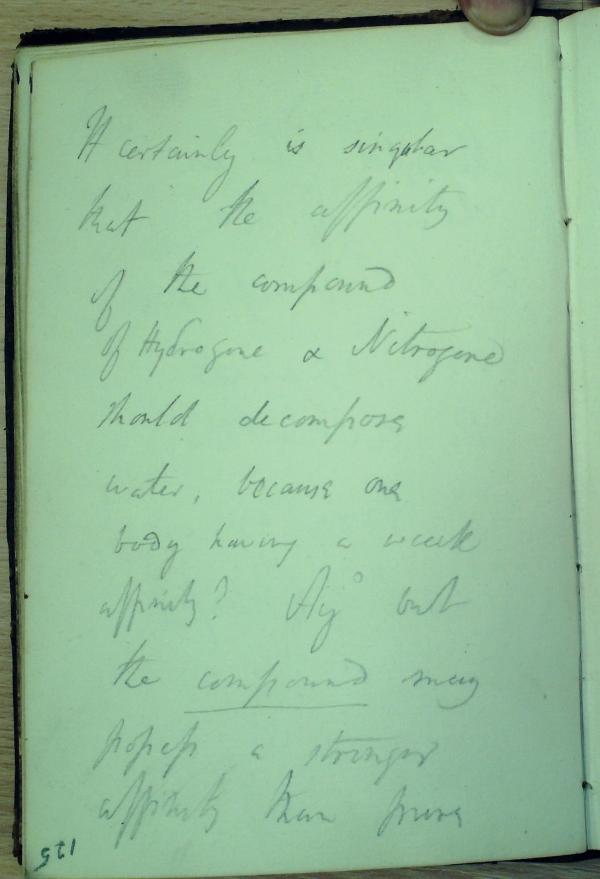 It certainly is singular
that the affinity
of the compound
of Hydrogene & Nitrogene
should decompose
water, because one
body having a weak
affinity? Ay° but
the compound may
possess a stronger
affinity than
125